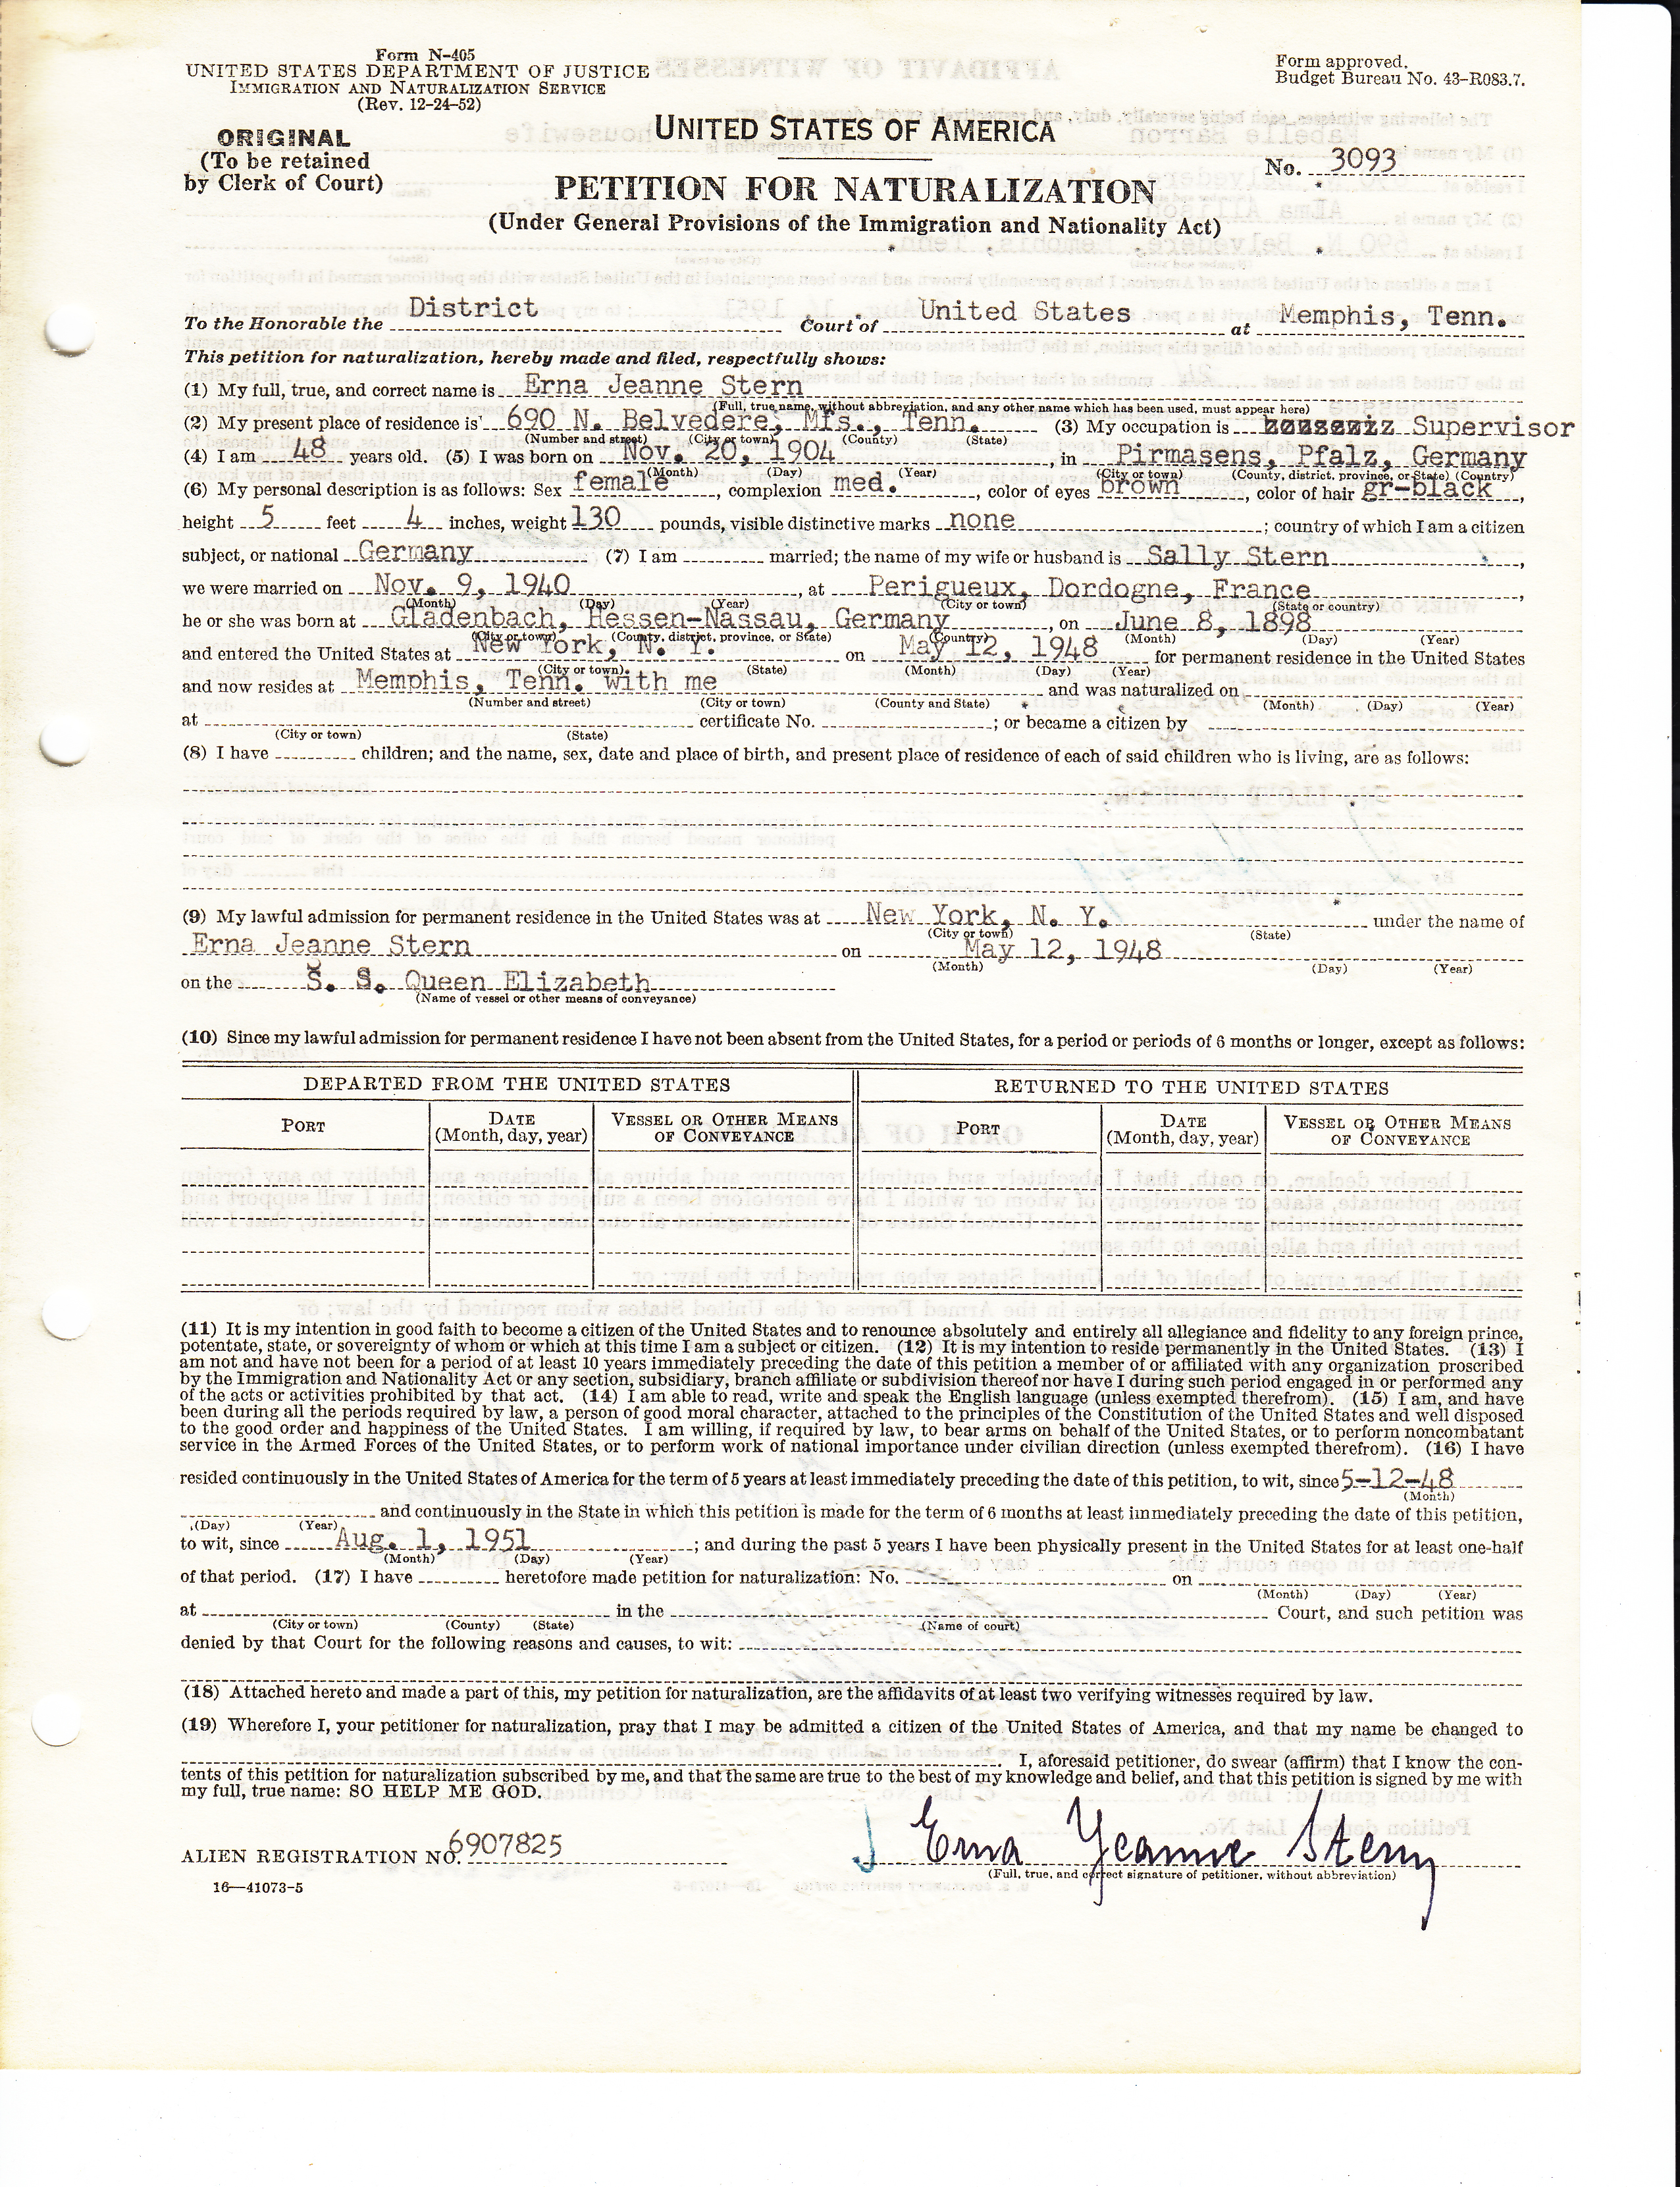 Form N-405
UNITED STATES DEPARTMENT OF JUSTICE
IMMIGRATION AND NATURALIZATION SERVICE
(Rev. 12-24-52)
Form approved.
Budget Bureau No. 43-R083.7.
ORIGINAL
(To be retained
by Clerk of Court)
UNITED STATES OF AMERICA
No. 3093
PETITION FOR NATURALIZATION
(Under General Provisions of the Immigration and Nationality Act)
To the Honorable the District Court of United States at Memphis, Tenn.
This petition for naturalization, hereby made and filed, respectfully shows:
(1) My full, true, and correct name is Erna Jeanne Stern
(Full, true name, without abbreviation, and any other name which has been used, must appear here)
(2) My present place of residence is 690 N. Belvedere, Mfs., Tenn. (3) My occupation is Supervisor
(Number and street) (City or town) (County) (State)
(4) I am 48 years old. (5) I was born on Nov. 20, 1904, in Pirmasens, Pfalz, Germany
(Month) (Day) (Year) (City or town) (County, district, province, or State) (Country)
(6) My personal description is as follows: Sex female, complexion med., color of eyes brown, color of hair gr-black,
height 5 feet 4 inches, weight 130 pounds, visible distinctive marks none; country of which I am a citizen
subject, or national Germany (7) I am married; the name of my wife or husband is Sally Stern,
we were married on Nov. 9, 1940, at Perigueux, Dordogne, France,
(Month) (Day) (Year) (City or town) (State or country)
he or she was born at Gladenbach, Hessen-Nassau, Germany, on June 8, 1898
(City or town) (County, district, province, or State) (Country) (Month) (Day) (Year)
and entered the United States at New York, N. Y. on May 12, 1948 for permanent residence in the United States
(City or town) (State) (Month) (Day) (Year)
and now resides at Memphis, Tenn. with me and was naturalized on
(Number and street) (City or town) (County and State) (Month) (Day) (Year)
at certificate No. ; or became a citizen by
(City or town) (State)
(8) I have children; and the name, sex, date and place of birth, and present place of residence of each of said children who is living, are as follows:
(9) My lawful admission for permanent residence in the United States was at New York, N. Y. under the name of
(City or town) (State)
Erna Jeanne Stern on May 12, 1948
(Month) (Day) (Year)
on the S. S. Queen Elizabeth
(Name of vessel or other means of conveyance)
(10) Since my lawful admission for permanent residence I have not been absent from the United States, for a period or periods of 6 months or longer, except as follows:
DEPARTED FROM THE UNITED STATES RETURNED TO THE UNITED STATES
PORT DATE (Month, day, year) VESSEL OR OTHER MEANS OF CONVEYANCE PORT DATE (Month, day, year) VESSEL OR OTHER MEANS OF CONVEYANCE
(11) It is my intention in good faith to become a citizen of the United States and to renounce absolutely and entirely all allegiance and fidelity to any foreign prince,
potentate, state, or sovereignty of whom or which at this time I am a subject or citizen. (12) It is my intention to reside permanently in the United States. (13) I
am not and have not been for a period of at least 10 years immediately preceding the date of this petition a member of or affiliated with any organization proscribed
by the Immigration and Nationality Act or any section, subsidiary, branch affiliate or subdivision thereof nor have I during such period engaged in or performed any
of the acts or activities prohibited by that act. (14) I am able to read, write and speak the English language (unless exempted therefrom). (15) I am, and have
been during all the periods required by law, a person of good moral character, attached to the principles of the Constitution of the United States and well disposed
to the good order and happiness of the United States. I am willing, if required by law, to bear arms on behalf of the United States, or to perform noncombatant
service in the Armed Forces of the United States, or to perform work of national importance under civilian direction (unless exempted therefrom). (16) I have
resided continuously in the United States of America for the term of 5 years at least immediately preceding the date of this petition, to wit, since 5-12-48
(Month)
and continuously in the State in which this petition is made for the term of 6 months at least immediately preceding the date of this petition,
(Day) (Year)
to wit, since Aug. 1, 1951; and during the past 5 years I have been physically present in the United States for at least one-half
(Month) (Day) (Year)
of that period. (17) I have heretofore made petition for naturalization: No. on
(Month) (Day) (Year)
at in the Court, and such petition was
(City or town) (County) (State) (Name of court)
denied by that Court for the following reasons and causes, to wit:
(18) Attached hereto and made a part of this, my petition for naturalization, are the affidavits of at least two verifying witnesses required by law.
(19) Wherefore I, your petitioner for naturalization, pray that I may be admitted a citizen of the United States of America, and that my name be changed to
I, aforesaid petitioner, do swear (affirm) that I know the con-
tents of this petition for naturalization subscribed by me, and that the same are true to the best of my knowledge and belief, and that this petition is signed by me with
my full, true name: SO HELP ME GOD.
ALIEN REGISTRATION NO. 6907825
Erna Jeanne Stern
(Full, true, and correct signature of petitioner, without abbreviation)
16—41073-5